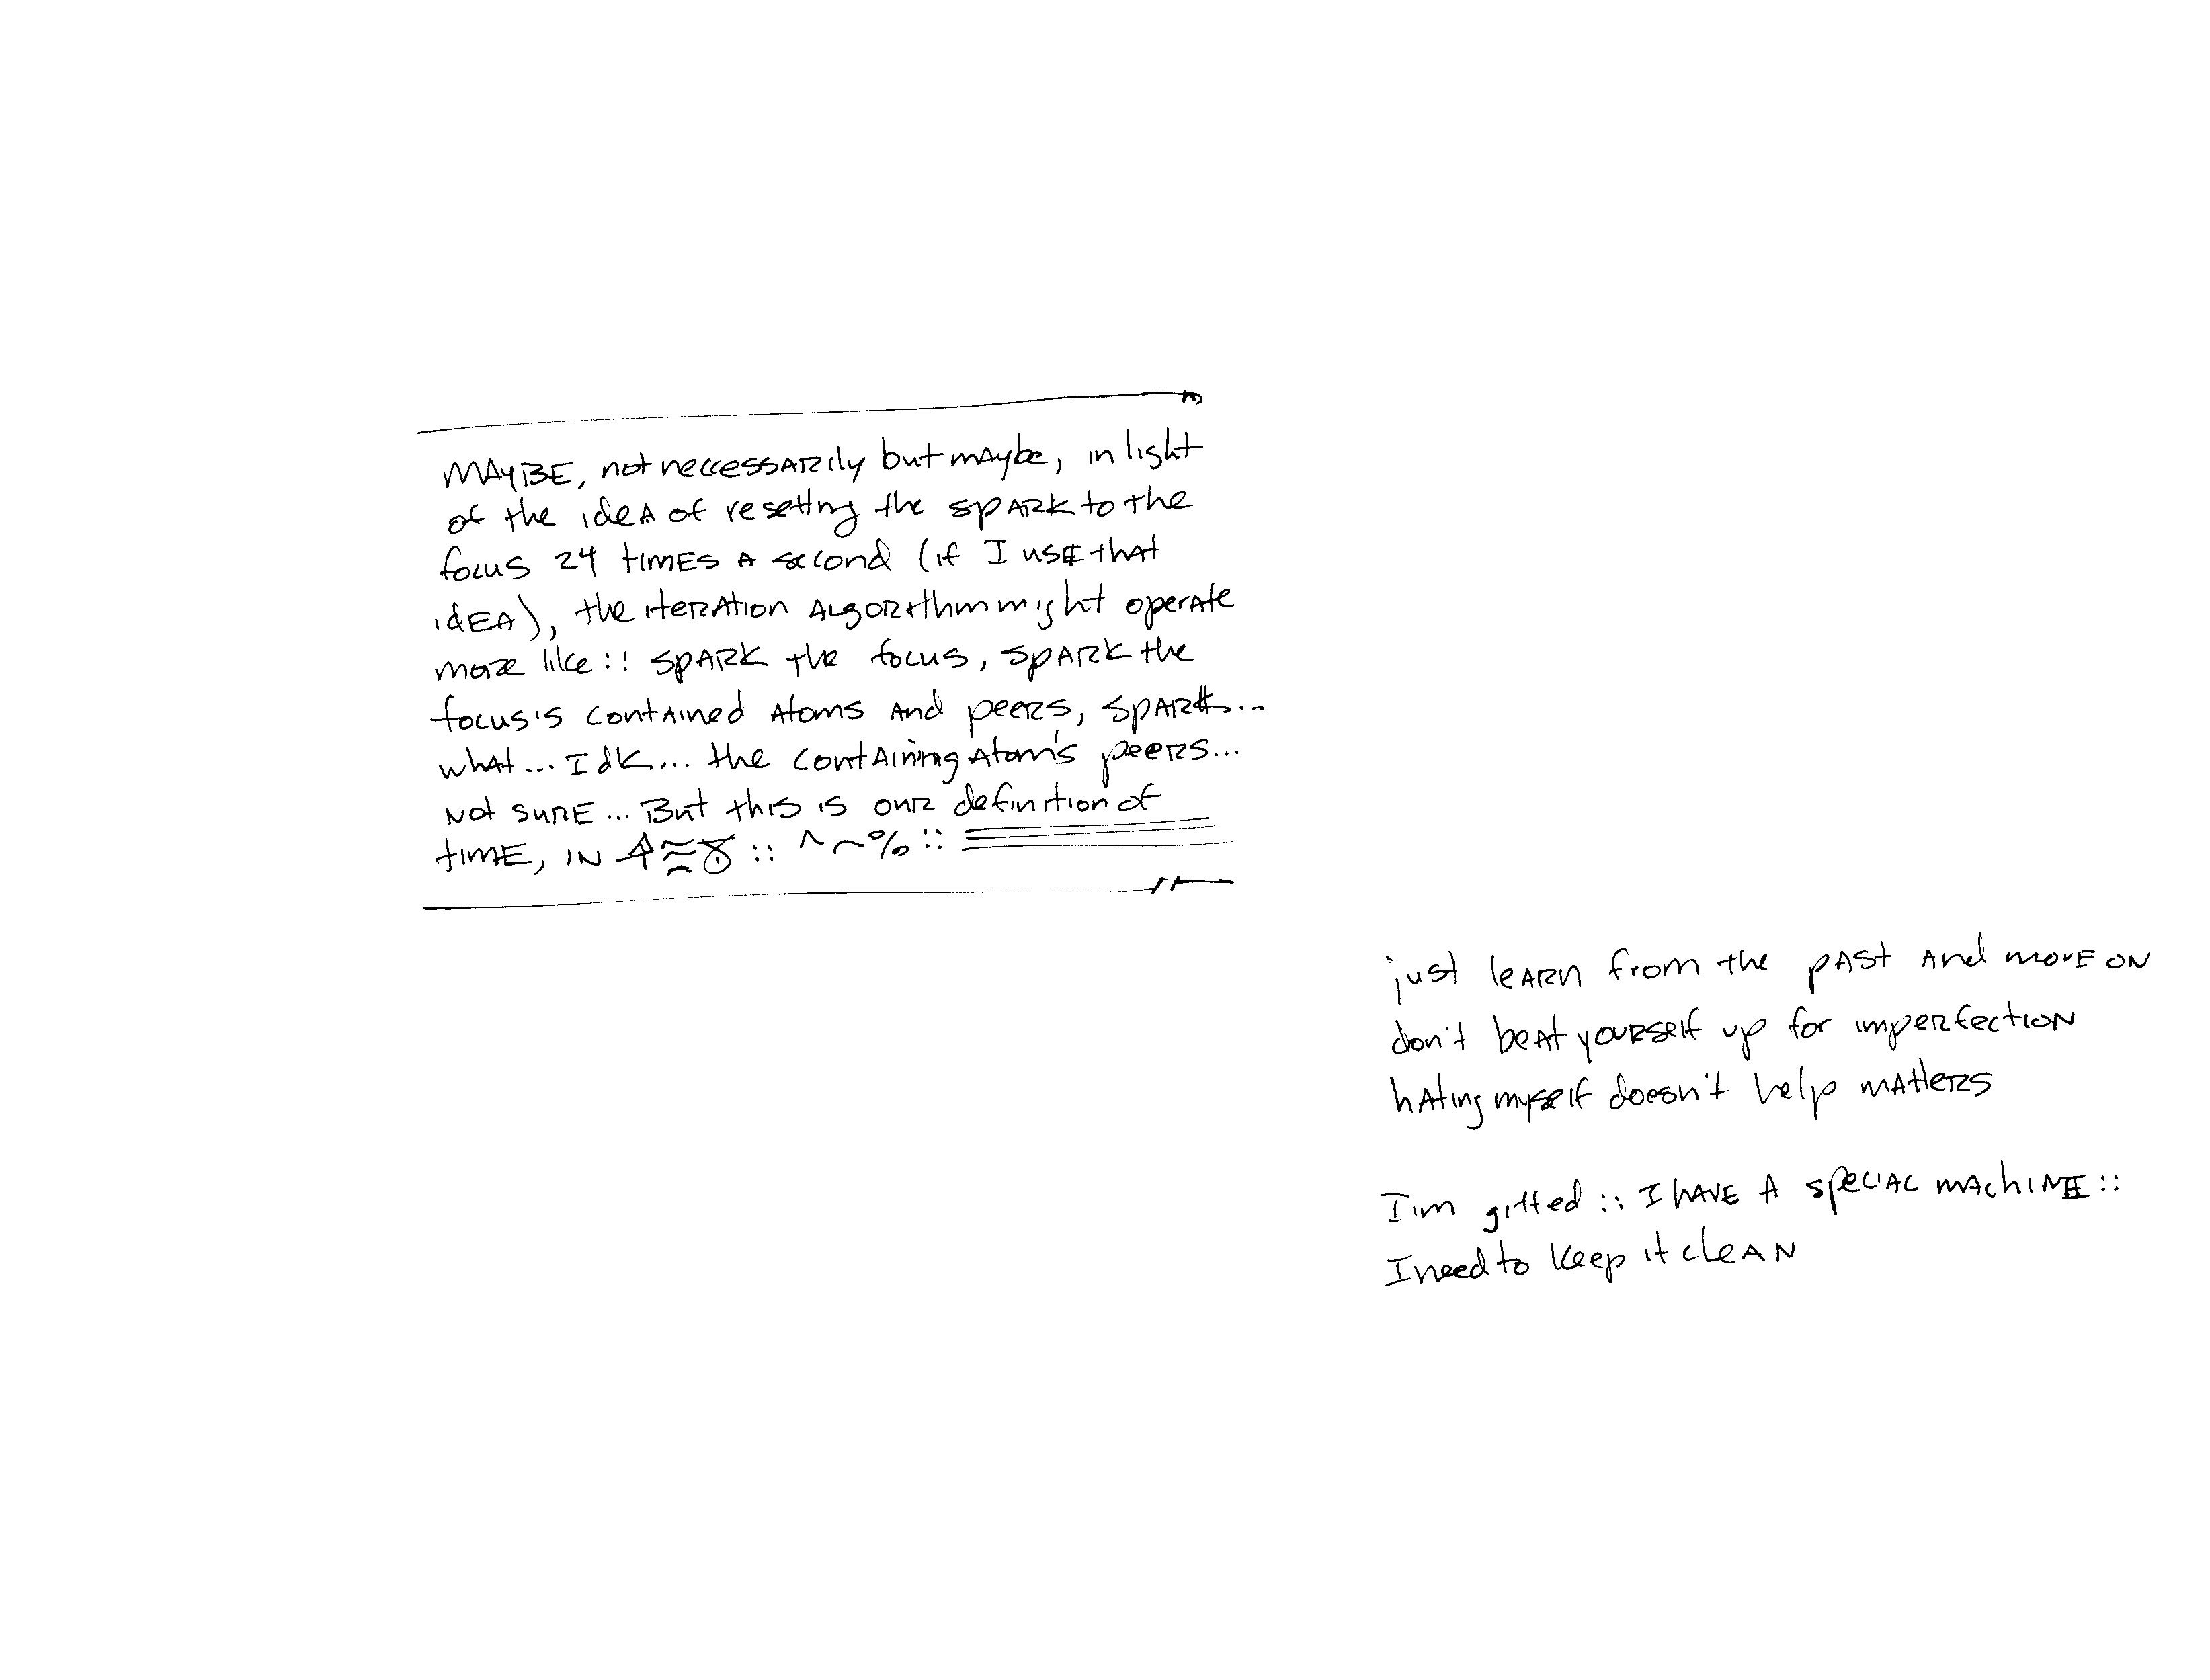 MAYBE, not necessarily but maybe, in light
of the idea of resetting the spark to the
focus 24 times a second (if I use that
idea), the iteration algorithm might operate
more like :: spark the focus, spark the
focus's contained atoms and peers, spark...
what... Idk... the containing atom's peers...
not sure... But this is our definition of
time, in :: ^ ~ % ::
just learn from the past and move on
don't beat yourself up for imperfection
hating myself doesn't help matters
I'm gifted :: I have a special machine ::
I need to keep it clean